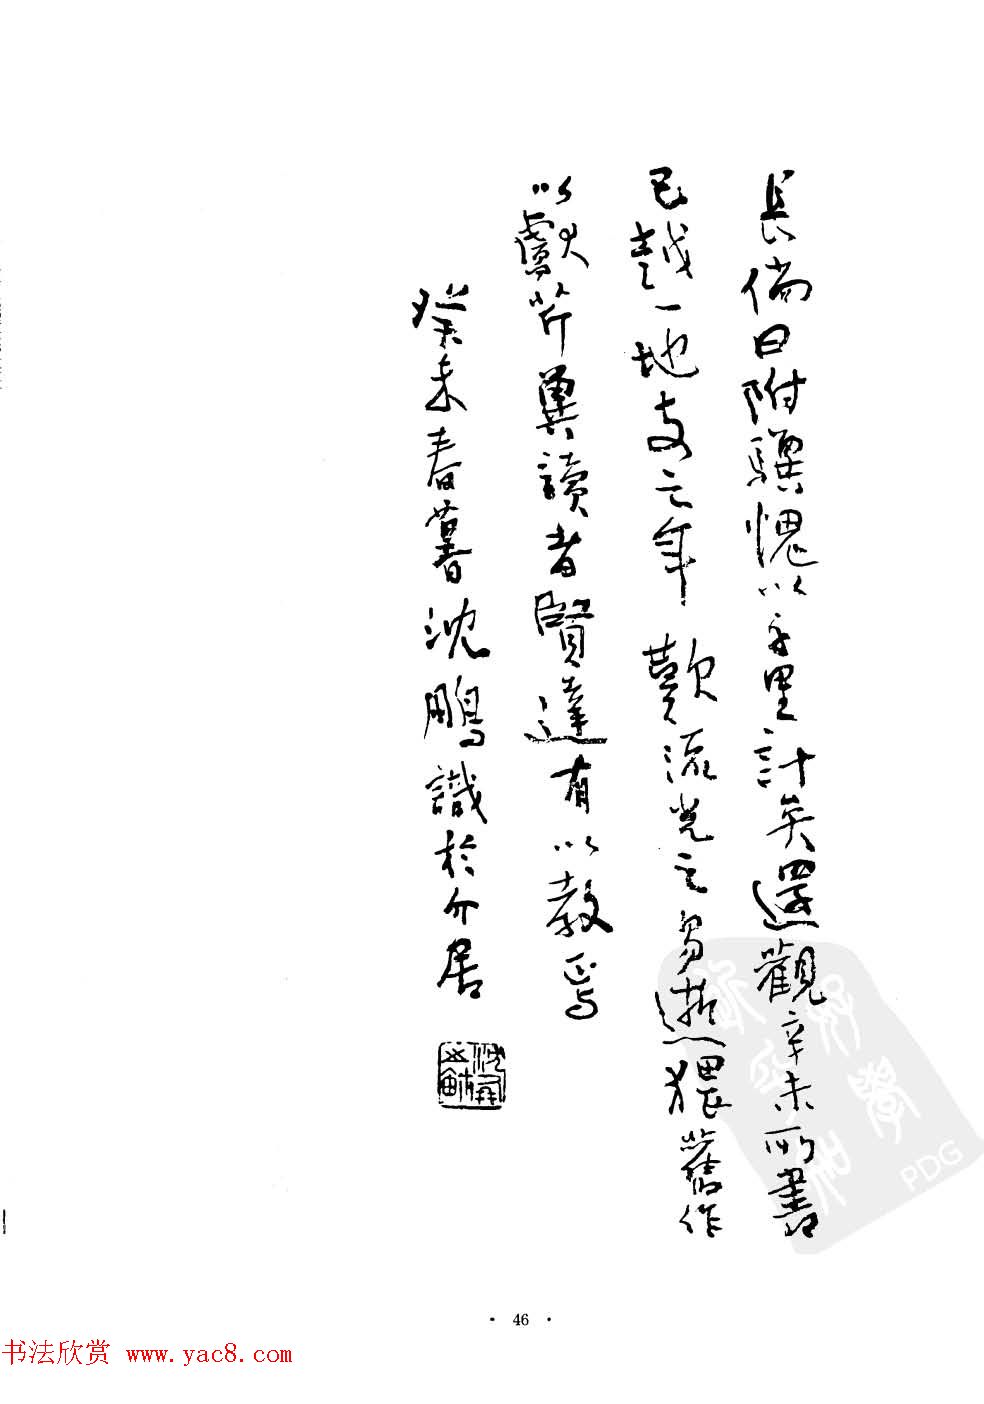 長倘曰附驥愧以千里計矣還觀辛未所書
已越一地支之年歎流光之易逝猥舊作
以獻芹冀讀者賢達有以教焉
癸未春暮沈鵬識於介居
PDG
· 46 ·
书法欣赏 www.yac8.com